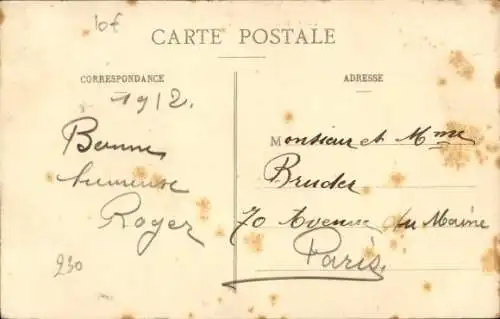 10f
CARTE POSTALE
CORRESPONDANCE
ADRESSE
1912.
Bonne
heureuse
Roger
230
Monsieur et Mme
Bruder
70 Avenue du Maine
Paris.